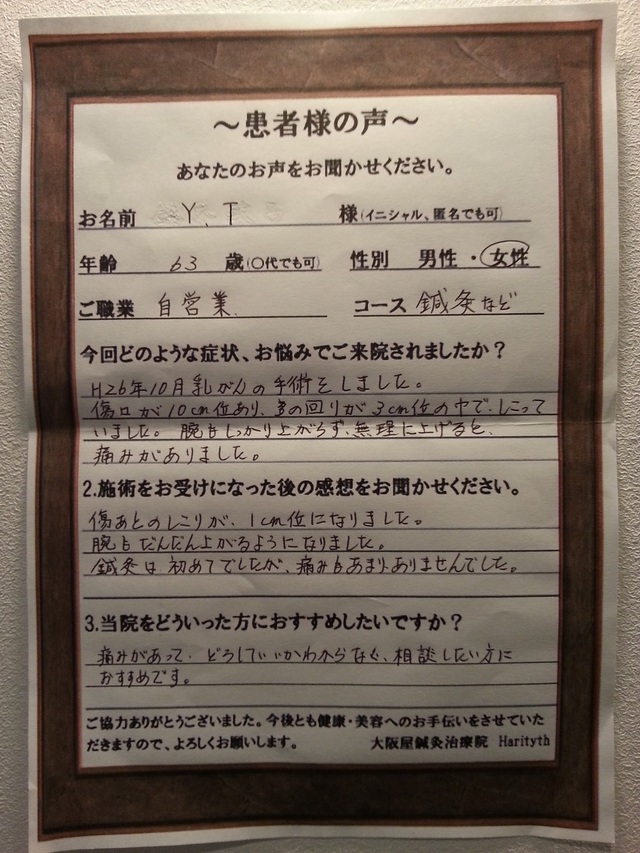 ～患者様の声～
あなたのお声をお聞かせください。
お名前 Y、T 様(イニシャル、匿名でも可)
年齢 63 歳(〇代でも可) 性別 男性・女性
ご職業 自営業 コース 鍼灸など
今回どのような症状、お悩みでご来院されましたか？
H26年10月乳がんの手術をしました。
傷口が10cm位あり、その回りが3cm位の中で、しこって
いました。腕もしっかり上がらず、無理に上げると、
痛みがありました。
2.施術をお受けになった後の感想をお聞かせください。
傷あとのしこりが、1cm位になりました。
腕もだんだん上がるようになりました。
鍼灸は初めてでしたが、痛みもあまりありませんでした。
3.当院をどういった方におすすめしたいですか？
痛みがあって、どうしていいかわからなく、相談したい方に
おすすめです。
ご協力ありがとうございました。今後とも健康・美容へのお手伝いをさせていた
だきますので、よろしくお願いします。 大阪屋鍼灸治療院 Harityth